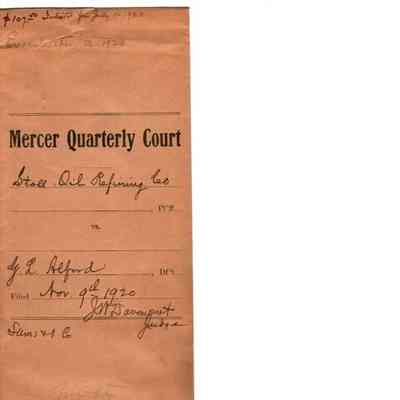 $107.50 Interest from July 1920
Mercer Quarterly Court
Stoll Oil Refining Co
, Pl'ff
vs.
G. L. Alford, Def.
Filed Nov. 9th 1920
J W Davenport
Judge